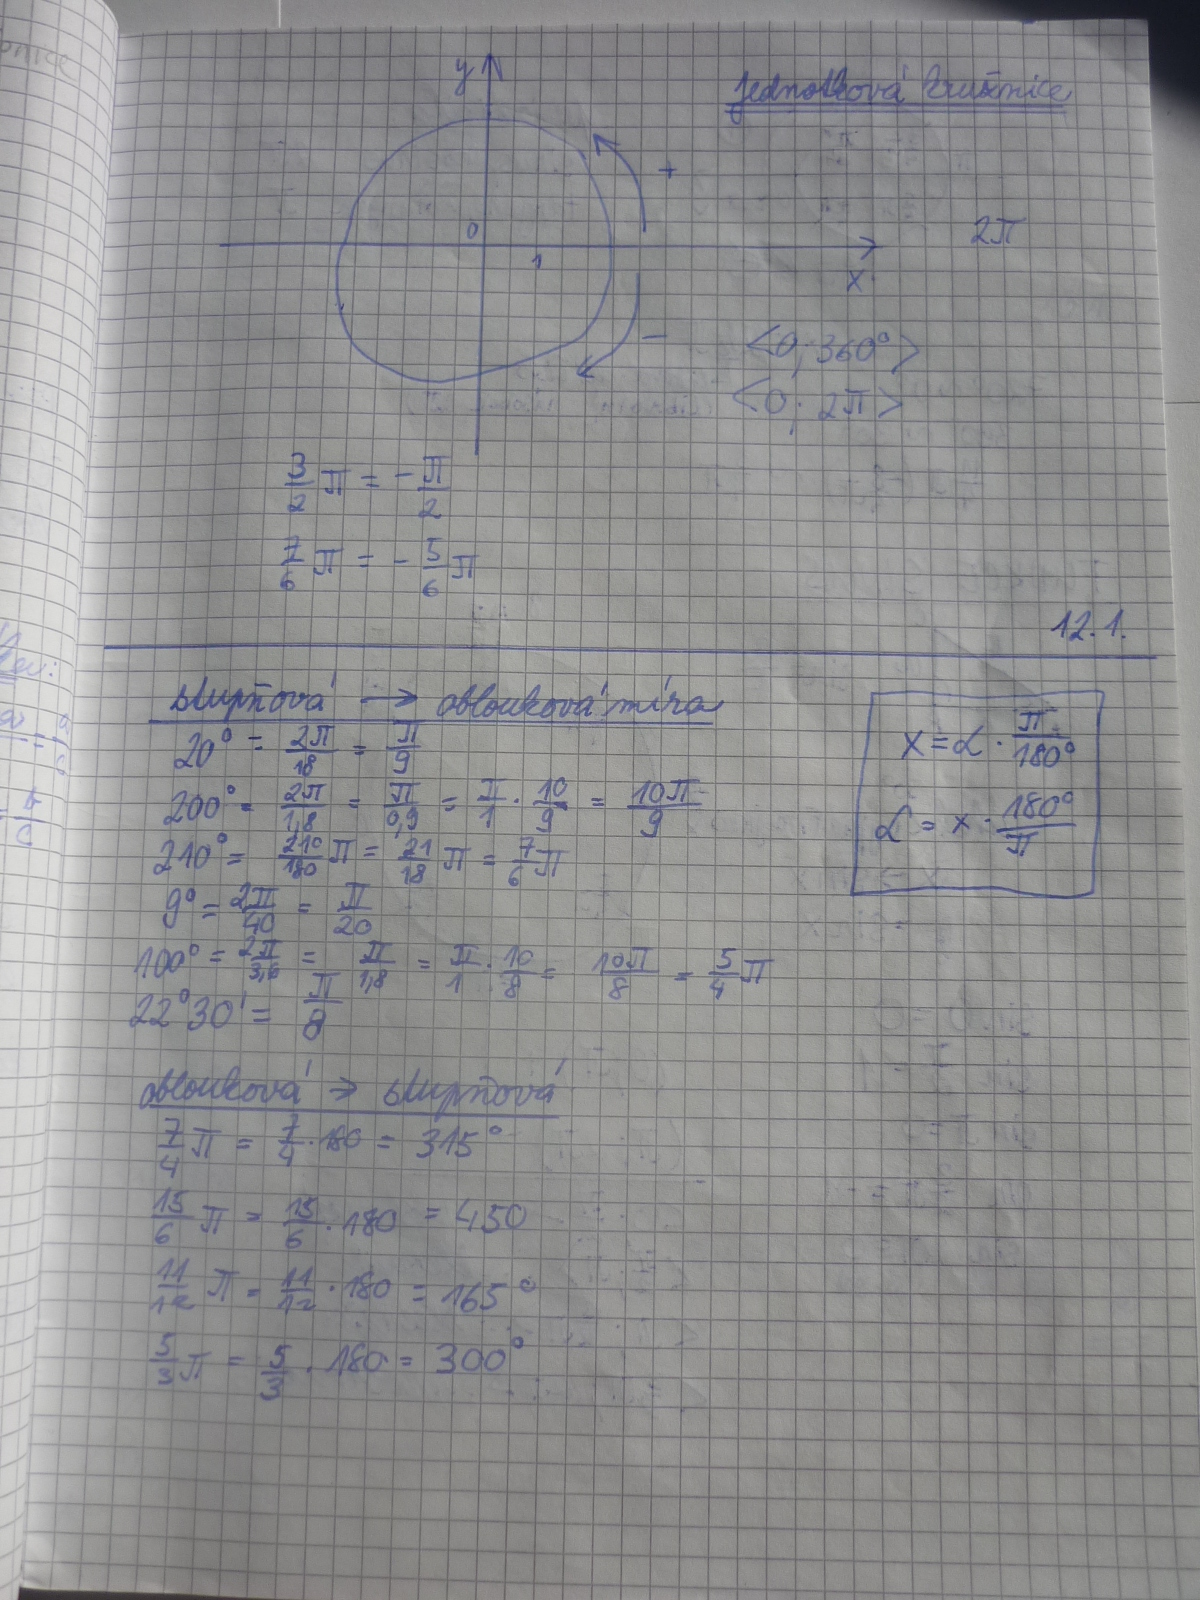 Jednotková kružnice
y
+
0
1
x
2π
−
<0; 360°>
<0; 2π>
3/2 π = - π/2
7/6 π = - 5/6 π
12.1.
stupňová → oblouková míra
20° = 2π/18 = π/9
200° = 2π/1,8 = π/0,9 = π/1 · 10/9 = 10π/9
210° = 210/180 π = 21/18 π = 7/6 π
9° = 2π/40 = π/20
100° = 2π/3,6 = π/1,8 = π/1 · 10/8 = 10π/8 = 5/4 π
22°30' = π/8
x = α · π/180°
α = x · 180°/π
oblouková → stupňová
7/4 π = 7/4 · 180 = 315°
15/6 π = 15/6 · 180 = 450
11/12 π = 11/12 · 180 = 165°
5/3 π = 5/3 · 180 = 300°